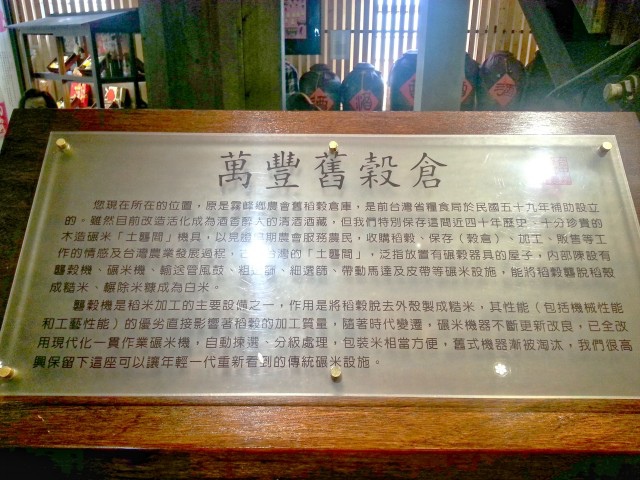 萬豐舊穀倉
您現在所在的位置，原是霧峰鄉農會舊稻穀倉庫，是前台灣省糧食局於民國五十九年補助設立
的。雖然目前改造活化成為酒香醉人的清酒酒藏，但我們特別保存這間近四十年歷史、十分珍貴的
木造碾米「土礱間」機具，以見證早期農會服務農民，收購稻穀、保存（穀倉）、加工、販售等工
作的情感及台灣農業發展過程，古早台灣的「土礱間」，泛指放置有碾穀器具的屋子，內部陳設有
礱穀機、碾米機、輸送管風鼓、粗選篩、細選篩、帶動馬達及皮帶等碾米設施，能將稻穀礱脫稻殼
成糙米、輾除米糠成為白米。
礱穀機是稻米加工的主要設備之一，作用是將稻穀脫去外殼製成糙米，其性能（包括機械性能
和工藝性能）的優劣直接影響著稻穀的加工質量，隨著時代變遷，碾米機器不斷更新改良，已全改
用現代化一貫作業碾米機，自動揀選、分級處理，包裝米相當方便，舊式機器漸被淘汰，我們很高
興保留下這座可以讓年輕一代重新看到的傳統碾米設施。
酒